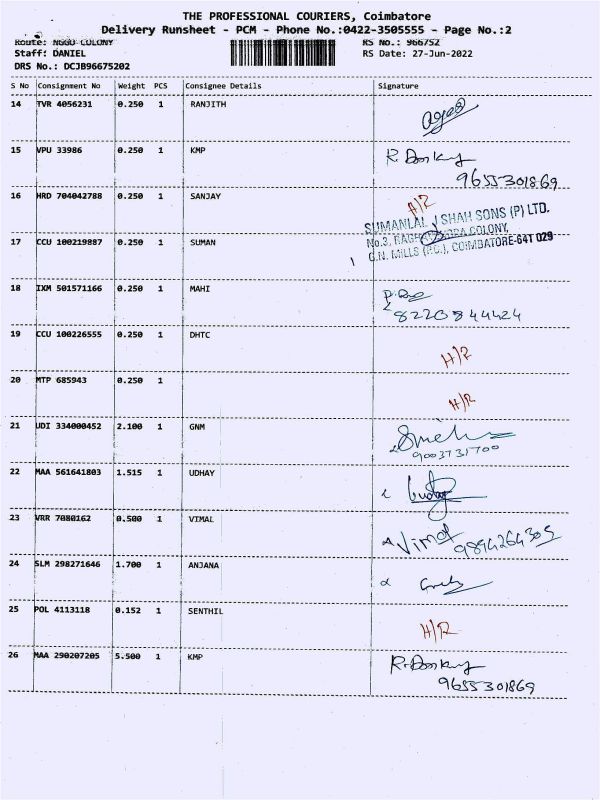 THE PROFESSIONAL COURIERS, Coimbatore
Delivery Runsheet - PCM - Phone No.:0422-3505555 - Page No.:2
Route: NGGO COLONY RS No.: 966752
Staff: DANIEL RS Date: 27-Jun-2022
DRS No.: DCJB96675202
S No Consignment No Weight PCS Consignee Details Signature
14 TVR 4056231 0.250 1 RANJITH
15 VPU 33986 0.250 1 KMP
9655301869
16 HRD 704042788 0.250 1 SANJAY H/R
SUMANLAL J SHAH SONS (P) LTD.
17 CCU 100219887 0.250 1 SUMAN No.3, COLONY,
G.N. MILLS (P.O.), COIMBATORE-641 029
18 IXM 501571166 0.250 1 MAHI
8220844424
19 CCU 100226555 0.250 1 DHTC
H/R
20 MTP 685943 0.250 1
H/R
21 UDI 334000452 2.100 1 GNM
9003731700
22 MAA 561641803 1.515 1 UDHAY
23 VRR 7080162 0.500 1 VIMAL
Vimal 9894264305
24 SLM 298271646 1.700 1 ANJANA
25 POL 4113118 0.152 1 SENTHIL
H/R
26 MAA 290207205 5.500 1 KMP
9655301869